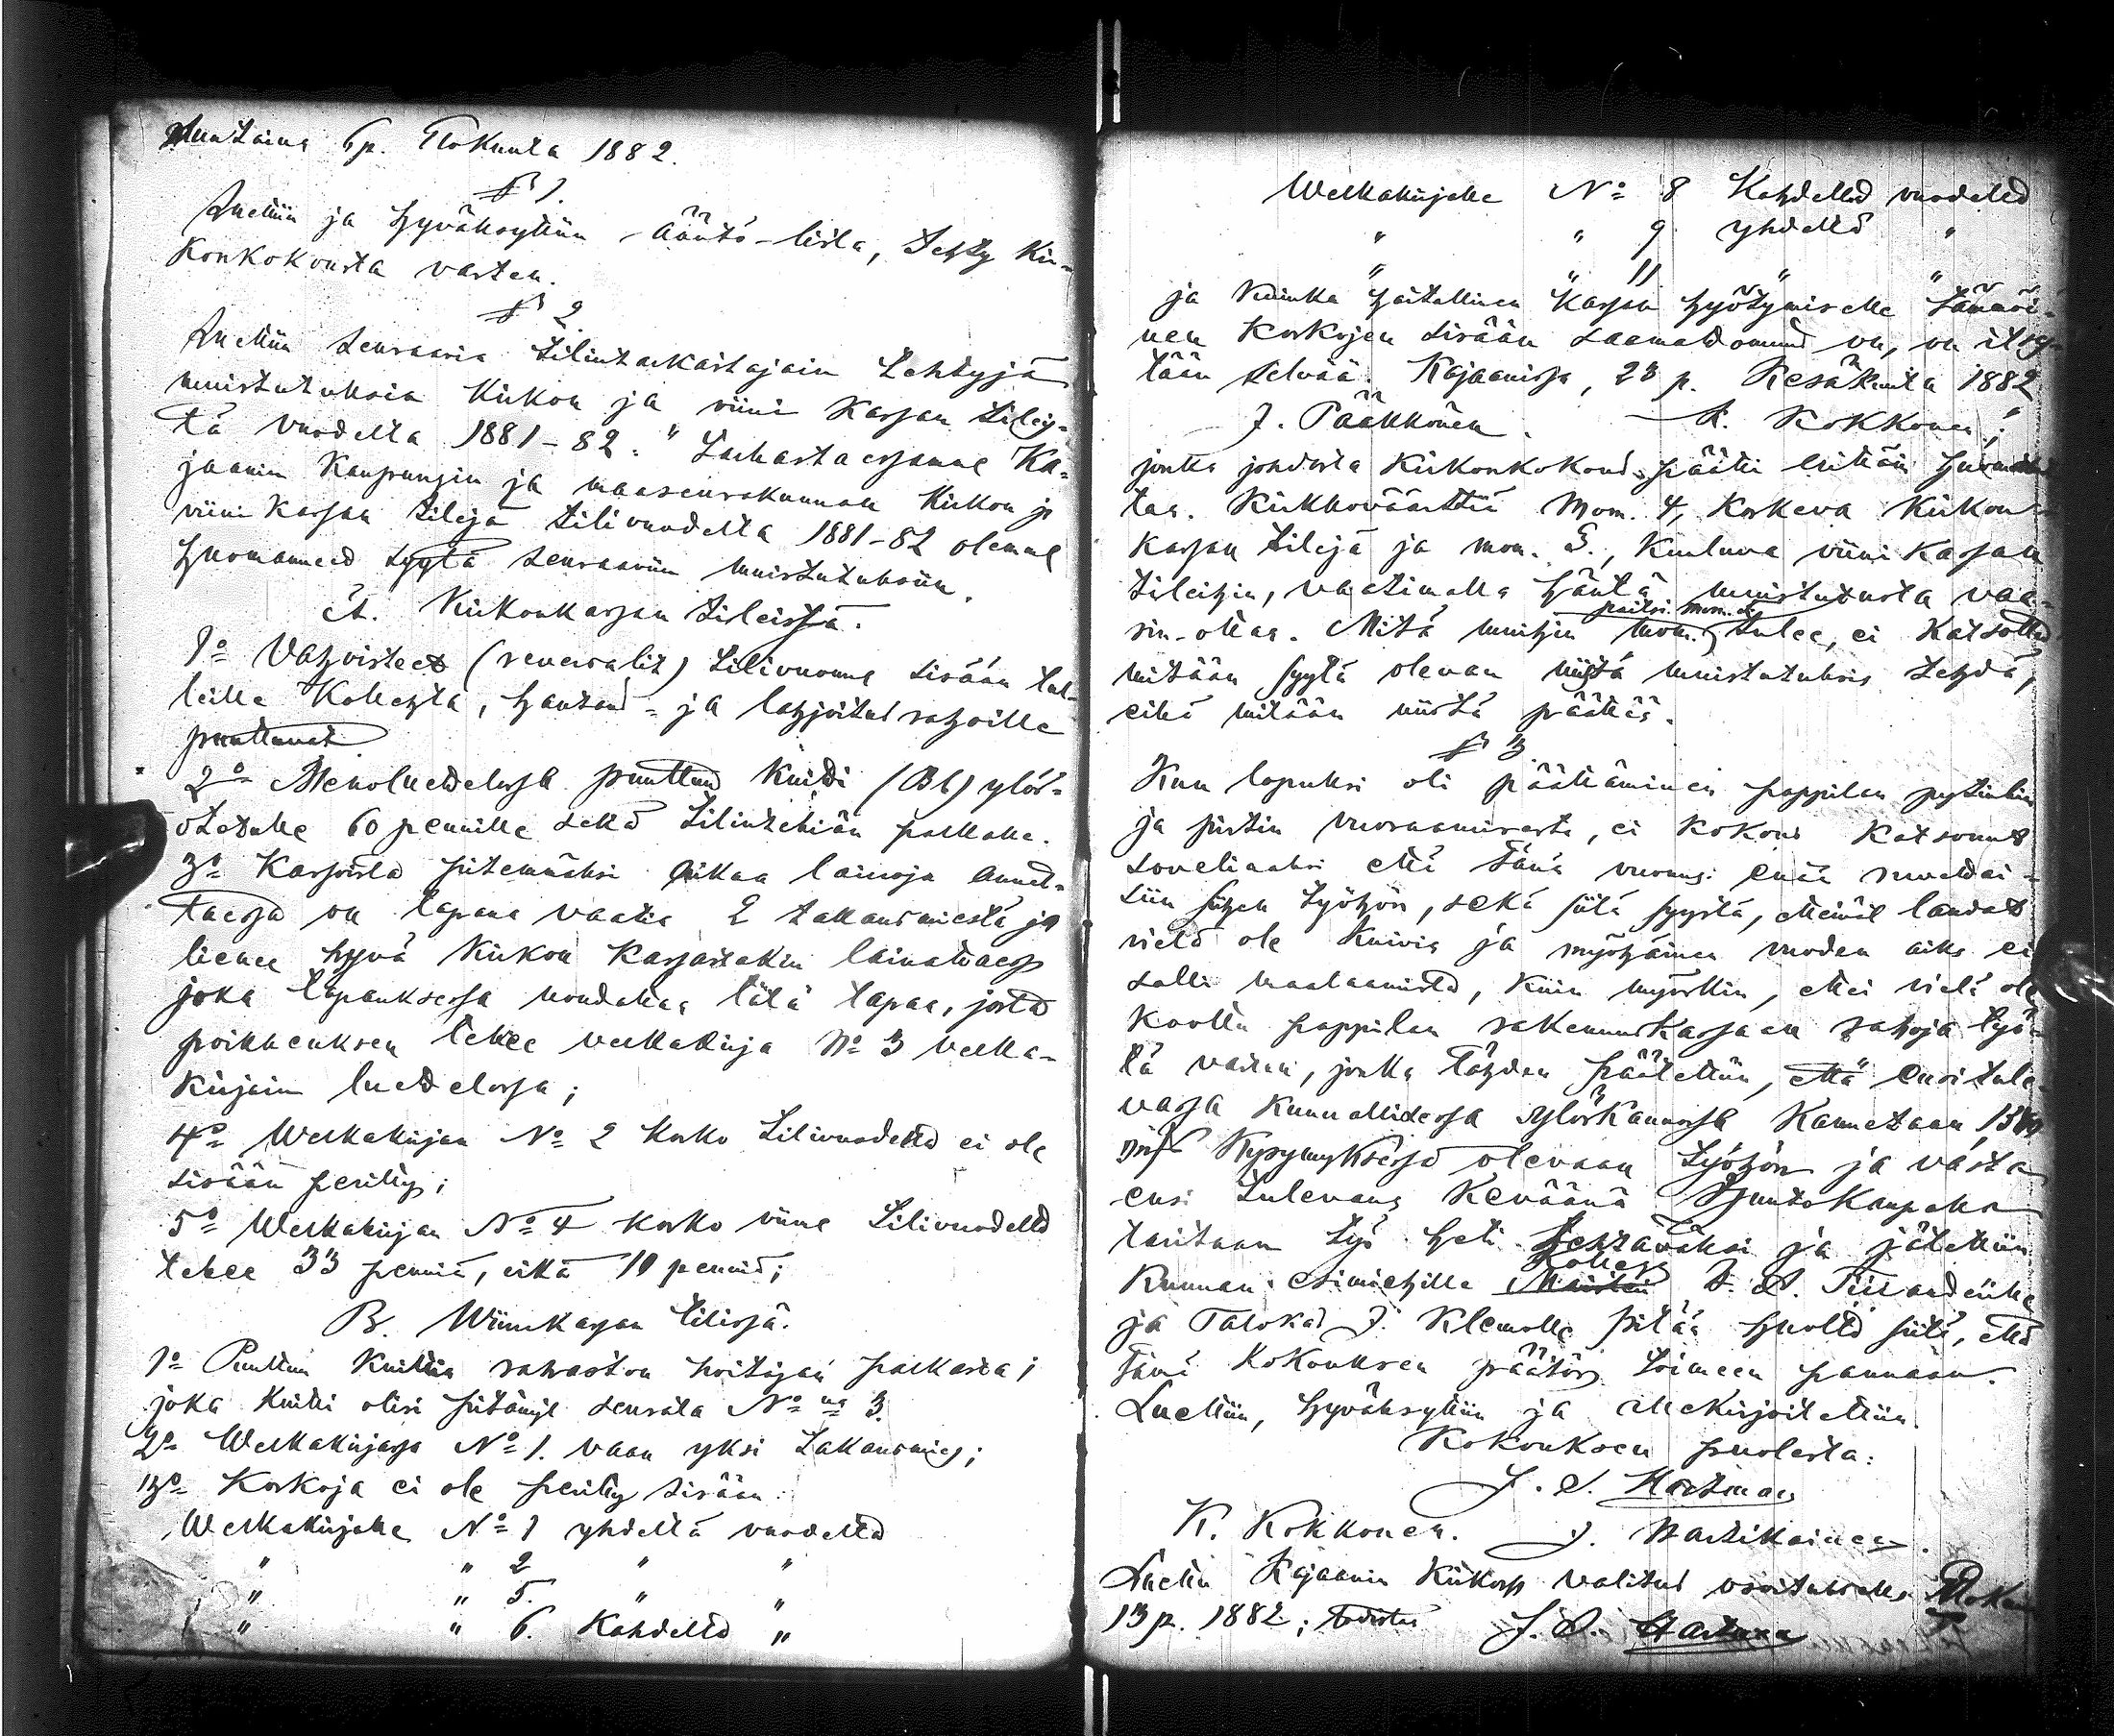 Suntaina 6 p. Elokuuta 1882.
§ 1.
Luettiin ja hyväksyttiin ääntö-lista, tehty Kir-
konkokousta varten.
§ 2
Luettiin seuraavia tilintarkastajain tehtyjä
muistutuksia Kirkon ja viini Kassan tilejs-
tä vuodelta 1881-82. "Tarkastaessamme Ka-
jaanin Kaupungin ja maaseurakunnan Kirkon ja
viini Kassan tilejä tilivuodelta 1881-82 olemme
huomanneed syytä seuraaviin muistutuksiin.
A. Kirkonkassan tileissä.
1o Vahvisteet (reversalit) tilivuonna sisään tul-
leille Kollehta, hautaus- ja lahjoitus rahoille
puuttuvat
2o Menoluettelossa puuttuu Kuitti (Bl) ylös-
otetulle 60 pennille sekä tilintekiän palkalle.
3o Kassoista pitemmäksi aikaa lainoja annet-
taessa on tapana vaatia 2 takausmiestä ja
lienee hyvä Kirkon Kassastakin lainattaess
joka tapauksessa noudattaa tätä tapaa, josta
poikkeuksen tekee velkakirja No 3 velka-
kirjain luettelossa;
4o Welkakirjan No 2 korko tilivuodelta ei ole
sisään peritty;
5o Welkakirjan No 4 korko viime tilivuodelta
tekee 33 penniä, eikä 10 penniä;
B. Wiinikassan tilissä.
1o Puuttuu Kuittia rahaston hoitajan palkasta;
joka kuitti olisi pitänyt seurata No na 3.
2o Welkakirjassa No 1. vaan yksi takausmies;
3o Korkoja ei ole peritty sisään:
Welkakirjalle No 1 yhdeltä vuodelta
" " 2 " "
" " 5. " "
" " 6. Kahdelta "
Welkakirjalle No 8 Kahdelta vuodelta
" " 9 yhdeltä "
" " 11 " "
ja kuinka haitallinen Kassan hyötymiselle tämmöi-
nen korkojen sisään saamattomuus on, on itses-
tään selvää. Kajaanissa, 23 p. Kesäkuuta 1882
J. Pääkkönen. K. Kokkonen";
jonka johdosta Kirkonkokous päätti erittäin huomaut-
taa. Kirkkovääarttii mom. 4, koskeva Kirkon
kassan tilejä ja mom. 3., kuuluva viini Kassan
tileihin, vaatimalla häntä muistutusta vaa-
rin-ottaa. Mitä muihin mom. paitsi mom. tulee, ei katsottu
mitään syytä olevan niistä muistutuksia tehdä,
eikä mitään niistä päättää.
§ 3
Kun lopuksi oli päättäminen pappilan pytinkin
ja pirtin vuoraamisesta, ei kokous katsonut
soveliaaksi että tänä vuonna enää ruvettai-
siin siihen työhön, sekä siitä syystä, etteivät laudat
vielä ole kuivia ja myöhäinen vuoden aika ei
salli maalaamista, kuin myöskin, ettei vielä ole
koottu pappilan rakennuskassaan rahoja työ-
tä varten, jonka tähden päätettiin, että ensitule-
vassa kunnallisessa ylöskannossa kannetaan, 1500
mrk kysymyksessä olevaan työhön ja vasta
ensi tulevana keväänä huutokaupalla
taritaan työ heti tehtäväksi ja jätettiin
Kunnan esimiehille Kolleg. F. A. Tuiranderille
ja Talokas J. Klemolle pitää huolta siitä, että
tämä kokouksen päätös toimeen pannaan.
Luettiin, hyväksyttiin ja allekirjoitettiin.
Kokouksen puolesta:
J. A. Hartman
K. Kokkonen. J. Wartikainen.
Luettu Kajaanin Kirkossa valitus osoituksella Elokuu
13 p. 1882; todistaa J. A. Hartman